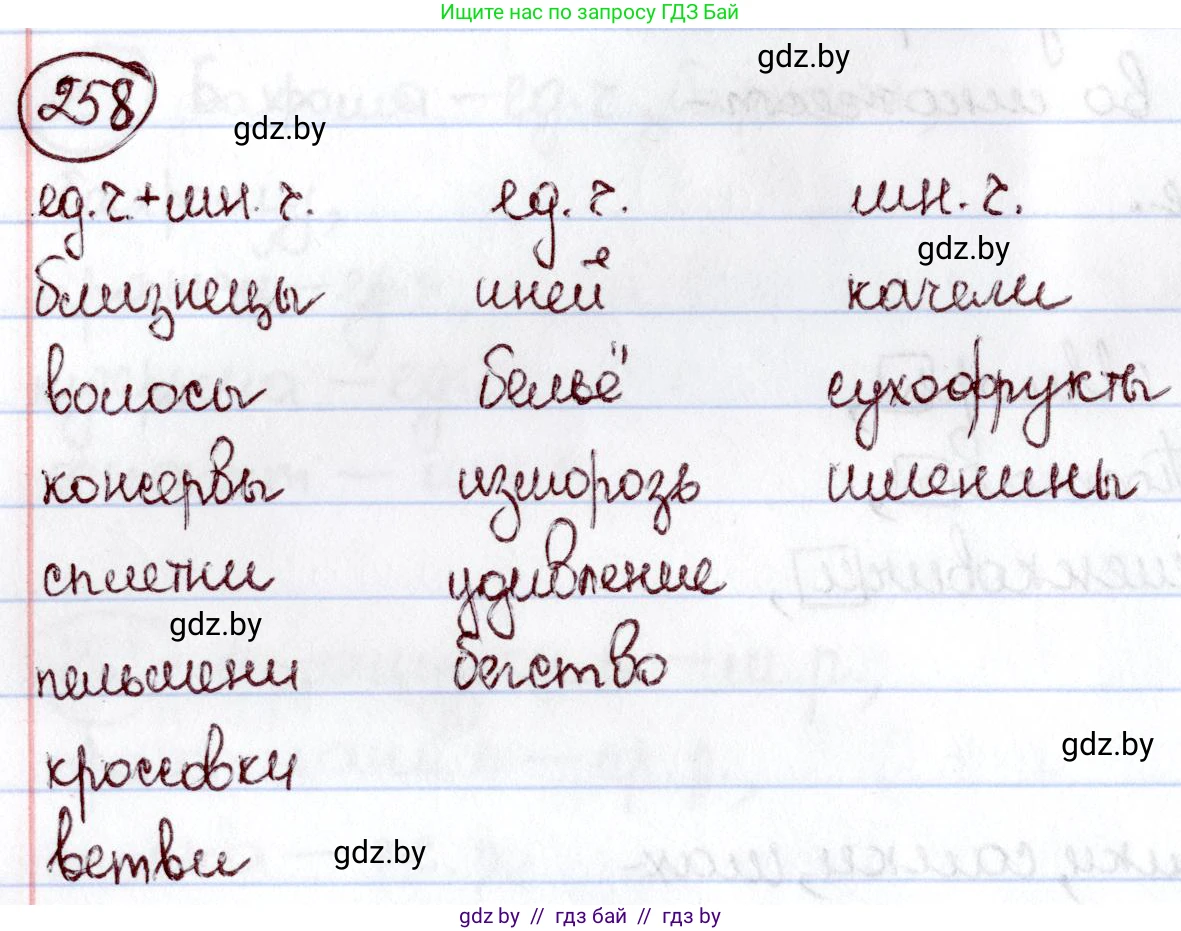 Ищите нас по запросу ГДЗ Бай
gdz.by
258
gdz.by
ед.ч.+мн.ч. ед.ч. мн.ч.
gdz.by
близнецы иней качели
волосы бельё сухофрукты
консервы изморозь именины
сплетни удивление
gdz.by
пельмени бегство
кроссовки
gdz.by
ветви
gdz.by
gdz by // гдз бай // гдз by